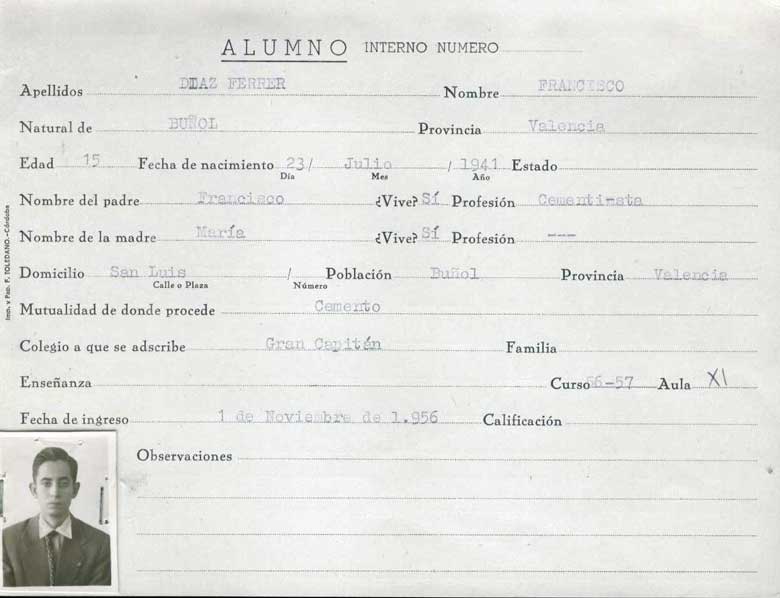 ALUMNO INTERNO NUMERO
Apellidos DIAZ FERRER Nombre FRANCISCO
Natural de BUÑOL Provincia Valencia
Edad 15 Fecha de nacimiento 23 / Julio / 1941 Estado
Día Mes Año
Nombre del padre Francisco ¿Vive? Sí Profesión Cementi-sta
Nombre de la madre María ¿Vive? Sí Profesión ---
Domicilio San Luis / Población Buñol Provincia Valencia
Calle o Plaza Número
Mutualidad de donde procede Cemento
Colegio a que se adscribe Gran Capitán Familia
Enseñanza Curso 56-57 Aula XI
Fecha de ingreso 1 de Noviembre de 1.956 Calificación
Observaciones
Imp. y Pap. F. TOLEDANO.-Córdoba